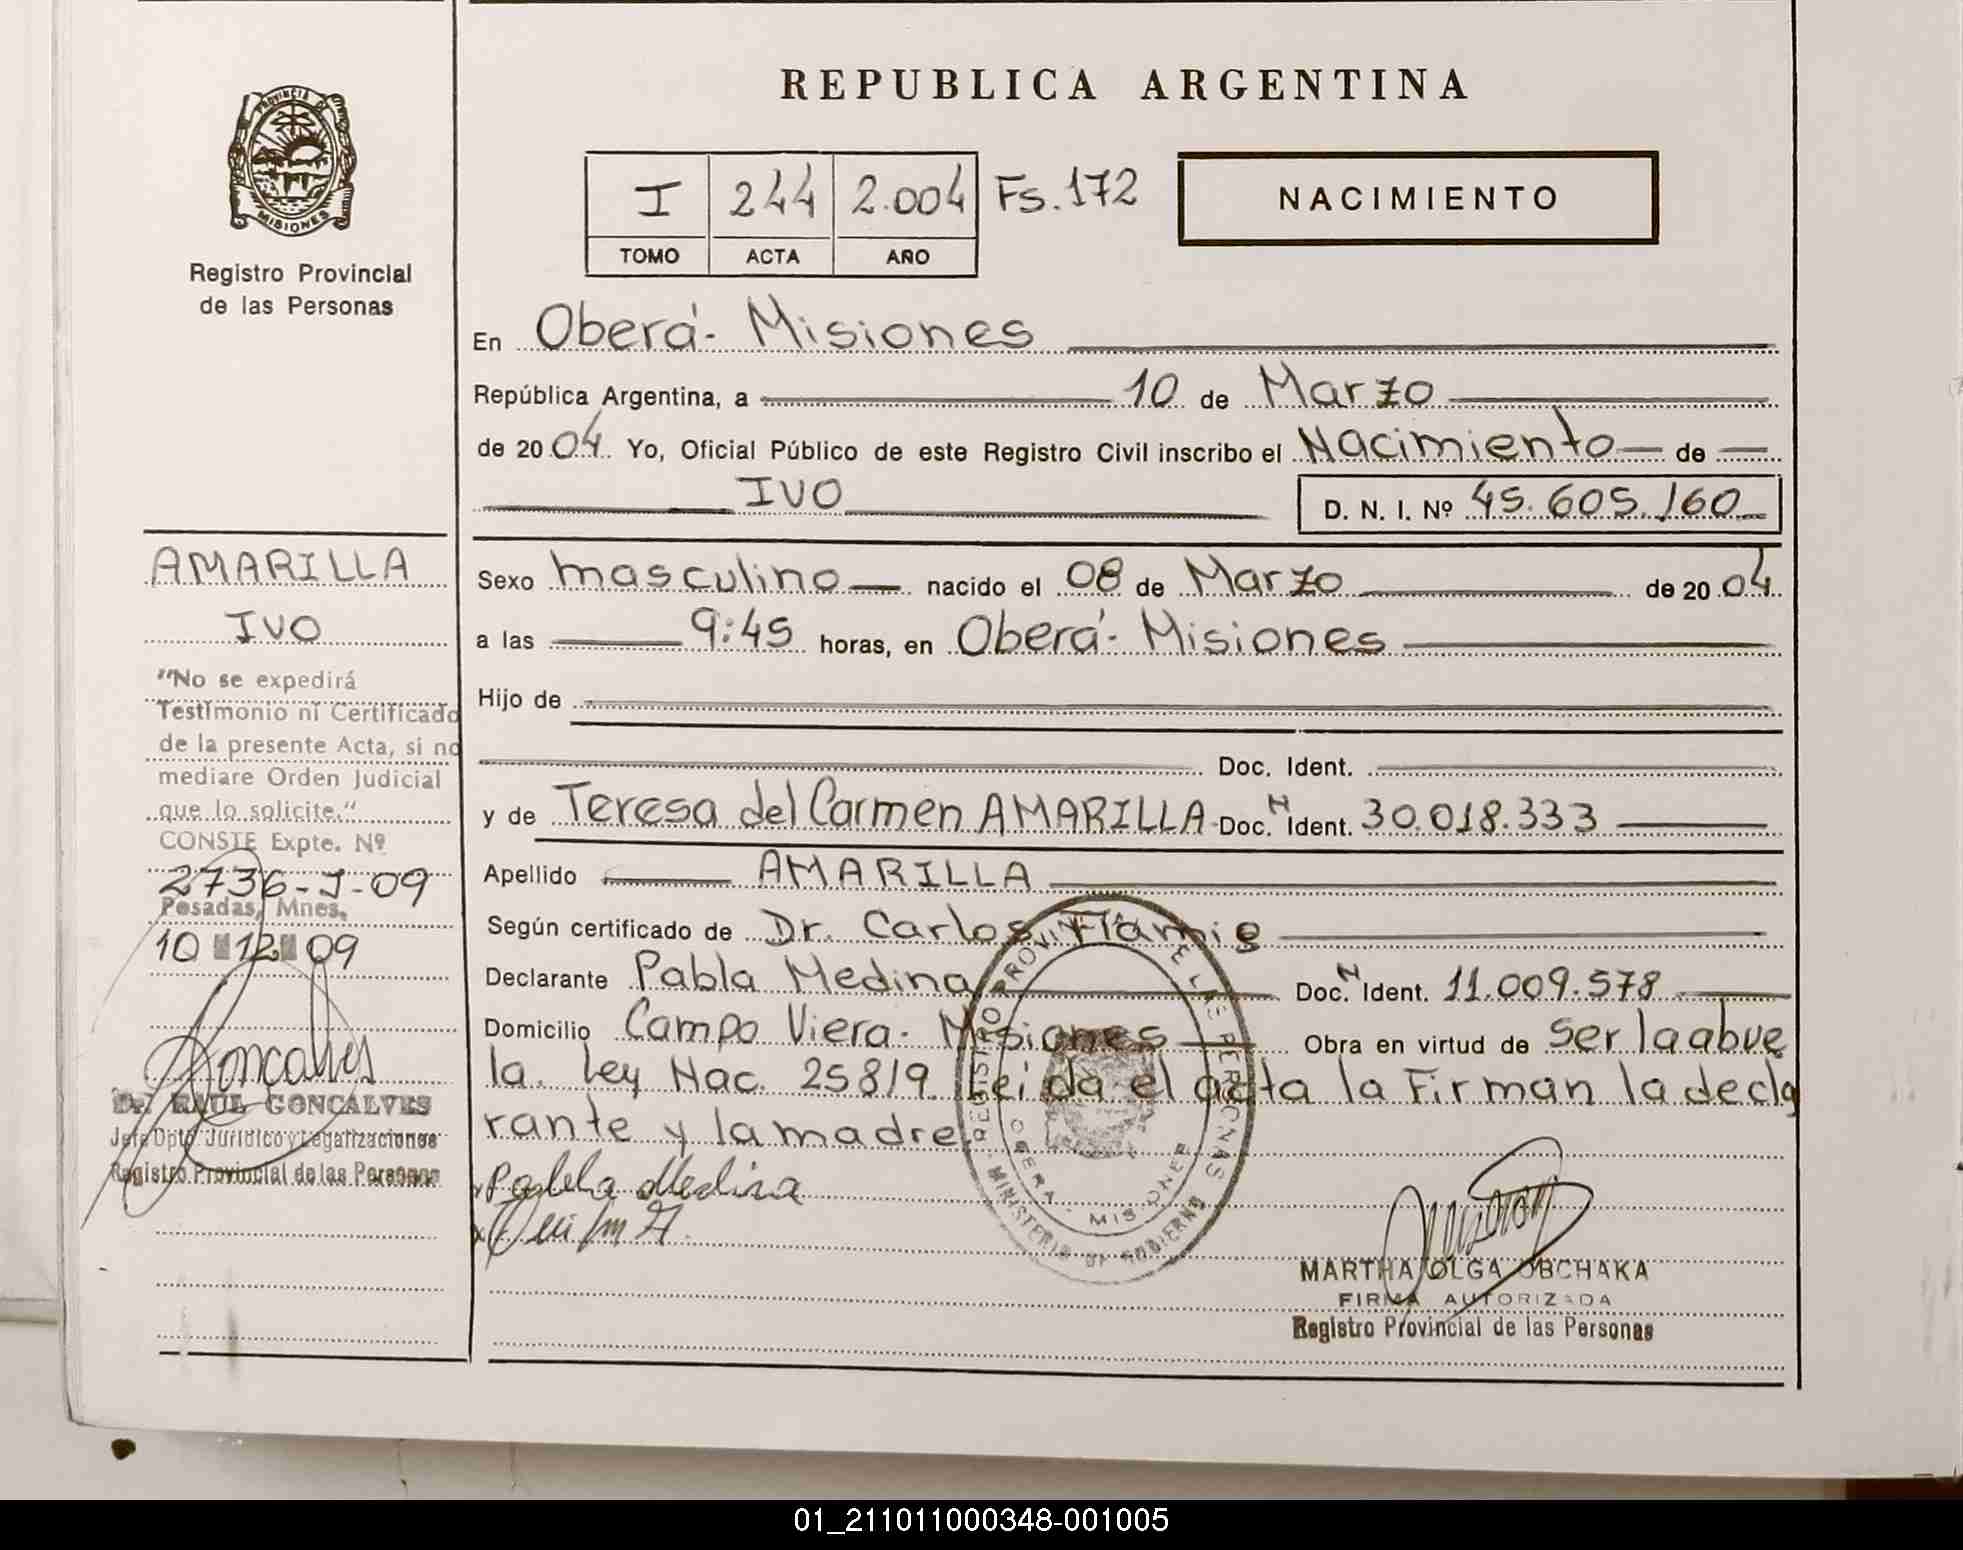 REPUBLICA ARGENTINA
PROVINCIA DE
MISIONES
Registro Provincial
de las Personas
I 244 2.004 Fs. 172
TOMO ACTA AÑO
NACIMIENTO
En Oberá - Misiones
República Argentina, a 10 de Marzo
de 2004 Yo, Oficial Público de este Registro Civil inscribo el Nacimiento de
IVO D. N. I. Nº 45.605.160
Sexo masculino nacido el 08 de Marzo de 2004
a las 9:45 horas, en Oberá - Misiones
Hijo de
Doc. Ident.
y de Teresa del Carmen AMARILLA Doc. N Ident. 30.018.333
Apellido AMARILLA
Según certificado de Dr. Carlos
Declarante Pabla Medina Doc. N Ident. 11.009.578
Domicilio Campo Viera - Misiones Obra en virtud de ser la abue
la. Ley Nac. 25819. Leida el acta la Firman la decla
rante y la madre
Pabla Medina
REGISTRO PROVINCIAL DE LAS PERSONAS
OBERA - MISIONES
MINISTERIO DE GOBIERNO
MARTHA OLGA OBCHAKA
FIRMA AUTORIZADA
Registro Provincial de las Personas
AMARILLA
IVO
"No se expedirá
Testimonio ni Certificado
de la presente Acta, si no
mediare Orden Judicial
que lo solicite."
CONSTE Expte. Nº
2736-J-09
Posadas, Mnes.
10 12 09
Goncalves
Dr. RAUL GONCALVES
Jefe Dpto. Jurídico y Legalizaciones
Registro Provincial de las Personas
01_211011000348-001005